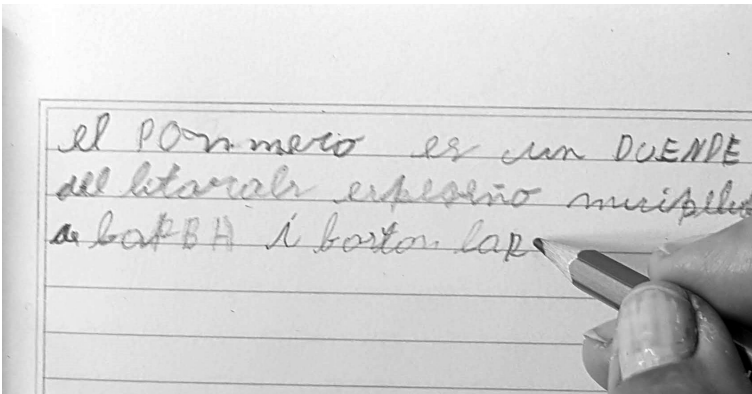 el POmmero es un DUENDE
del litorals espeseño muipelu
de baRBA i baston laR